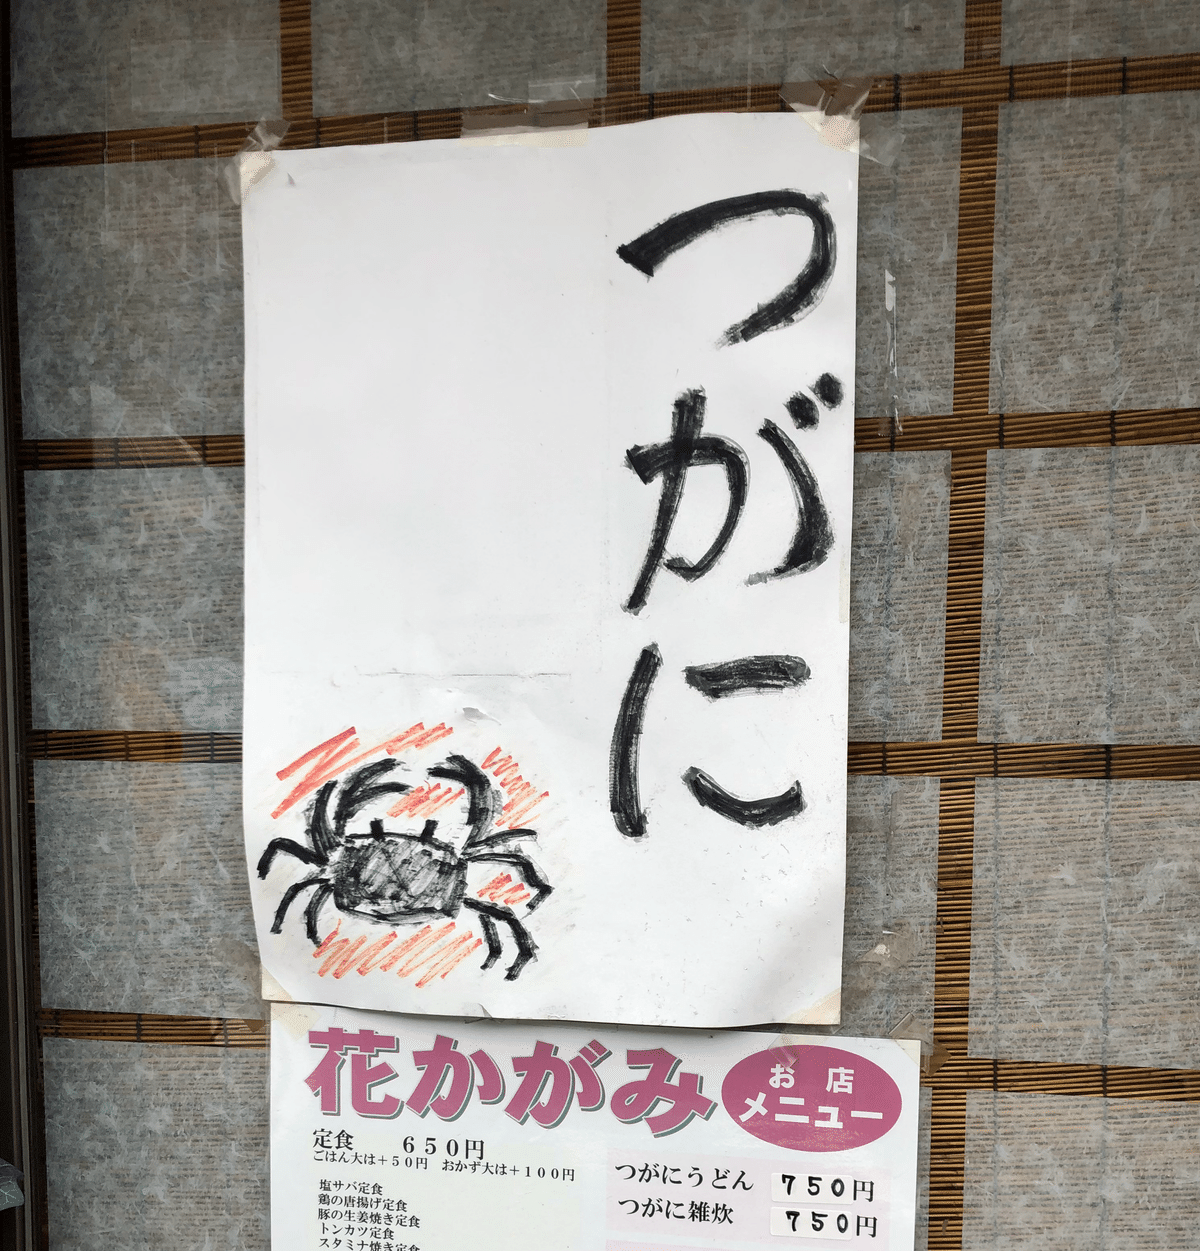 つがに
花かがみ
お店
メニュー
定食 650円
ごはん大は+50円 おかず大は+100円
塩サバ定食
鶏の唐揚げ定食
豚の生姜焼き定食
トンカツ定食
スタミナ焼き定食
つがにうどん 750円
つがに雑炊 750円